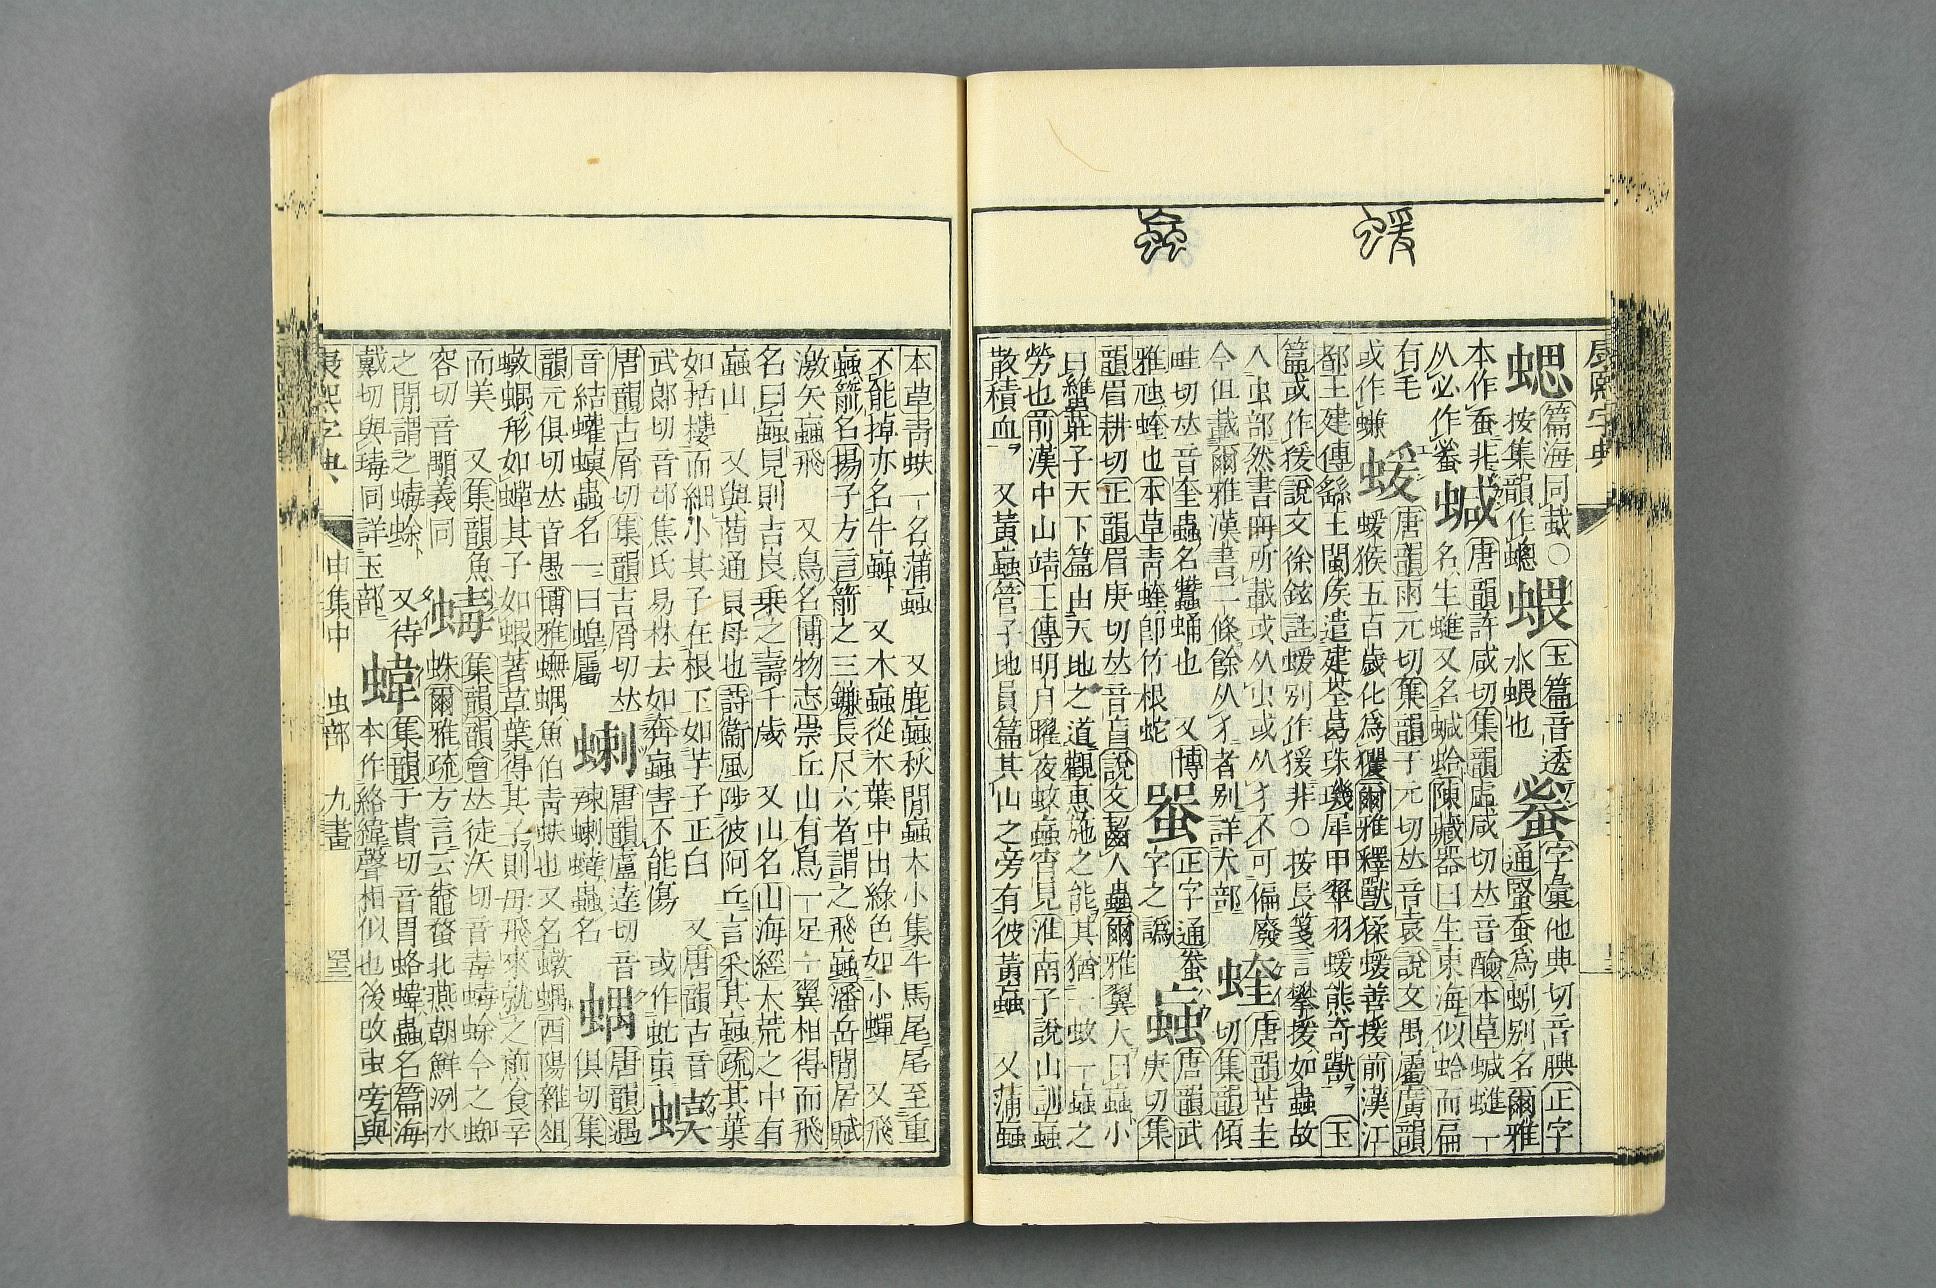 康熙字典
蝯
蝱
篇海同蛓○
按集韻作
玉篇音透
水　也
字彙他典切音腆正字
通　蚕爲蚓別名爾雅
本作蚕非
从必作
蝛
唐韻許咸切集韻虛咸切𠀤音醶本草蝛　一
名生　又名蝛蛤陳藏器曰生東海似蛤而扁
有毛
或作螊
蝯
唐韻雨元切集韻于元切𠀤音袁說文禺屬廣韻
蝯猴五百歲化爲玃爾雅釋獸猱蝯善援前漢江
都王建傳繇王閩侯遣建荃葛珠璣犀甲翠羽蝯熊奇獸 玉
篇或作猨說文徐鉉註蝯別作猨非○按長箋言攀援如蟲故
入虫部然書冊所載或从虫或从犭不可偏廢
今但載爾雅漢書二條餘从犭者別詳犬部
蝰
唐韻苦圭
切集韻傾
畦切𠀤音奎蟲名蠿蛹也 又博
雅虺蝰也本草靑蝰卽竹根蛇
正字通蚕
字之譌
蝱
唐韻武
庚切集
韻眉耕切正韻眉庚切𠀤音盲說文齧人蟲爾雅翼大曰蝱小
曰　莊子天下篇由天地之道觀惠施之能其猶一蚊一蝱之
勞也前漢中山靖王傳明月曜夜蚊蝱宵見淮南子說山訓蝱
散積血 又黃蝱管子地員篇其山之旁有彼黃蝱 又蒲蝱
本草靑蚨一名蒲蝱 又鹿蝱秋閒蝱木小集牛馬尾尾至重
不能掉亦名牛蝱 又木蝱從木葉中出綠色如小蟬 又飛
蝱箭名揚子方言箭之三鎌長尺六者謂之飛蝱潘岳閒居賦
激矢蝱飛 又鳥名博物志崇丘山有鳥一足一翼相得而飛
名曰蝱見則吉良乗之壽千歲 又山名山海經大荒之中有
蝱山 又與莔通貝母也詩衞風陟彼阿丘言采其蝱疏其葉
如栝樓而細小其子在根下如芋子正白 又唐韻古音
武郞切音邙焦氏易林去如奔蝱害不能傷 或作虻䖟
唐韻古屑切集韻吉屑切𠀤
音結蠸螟蟲名一曰蝗屬
蝲
唐韻盧達切音
辣蝲　蟲名
蝺
唐韻遇
俱切集
韻元俱切𠀤音愚博雅蟱蝺魚伯靑蚨也又名蠍蝺酉陽雜俎
蝺形如蟬其子如蝦著草葉得其子則母飛來就之煎食辛
而美 又集韻魚
容切音顒義同
集韻韻會𠀤徒沃切音毒　蜍今之蝍
蛛爾雅疏方言云鼅鼄北燕朝鮮洌水
之閒謂之　蜍 又待
戴切與瑇同詳玉部
蝟
集韻于貴切音胃蛒　蟲名篇海
本作絡緯聲相似也後改虫旁與
康熙字典
申集中 虫部 九畫